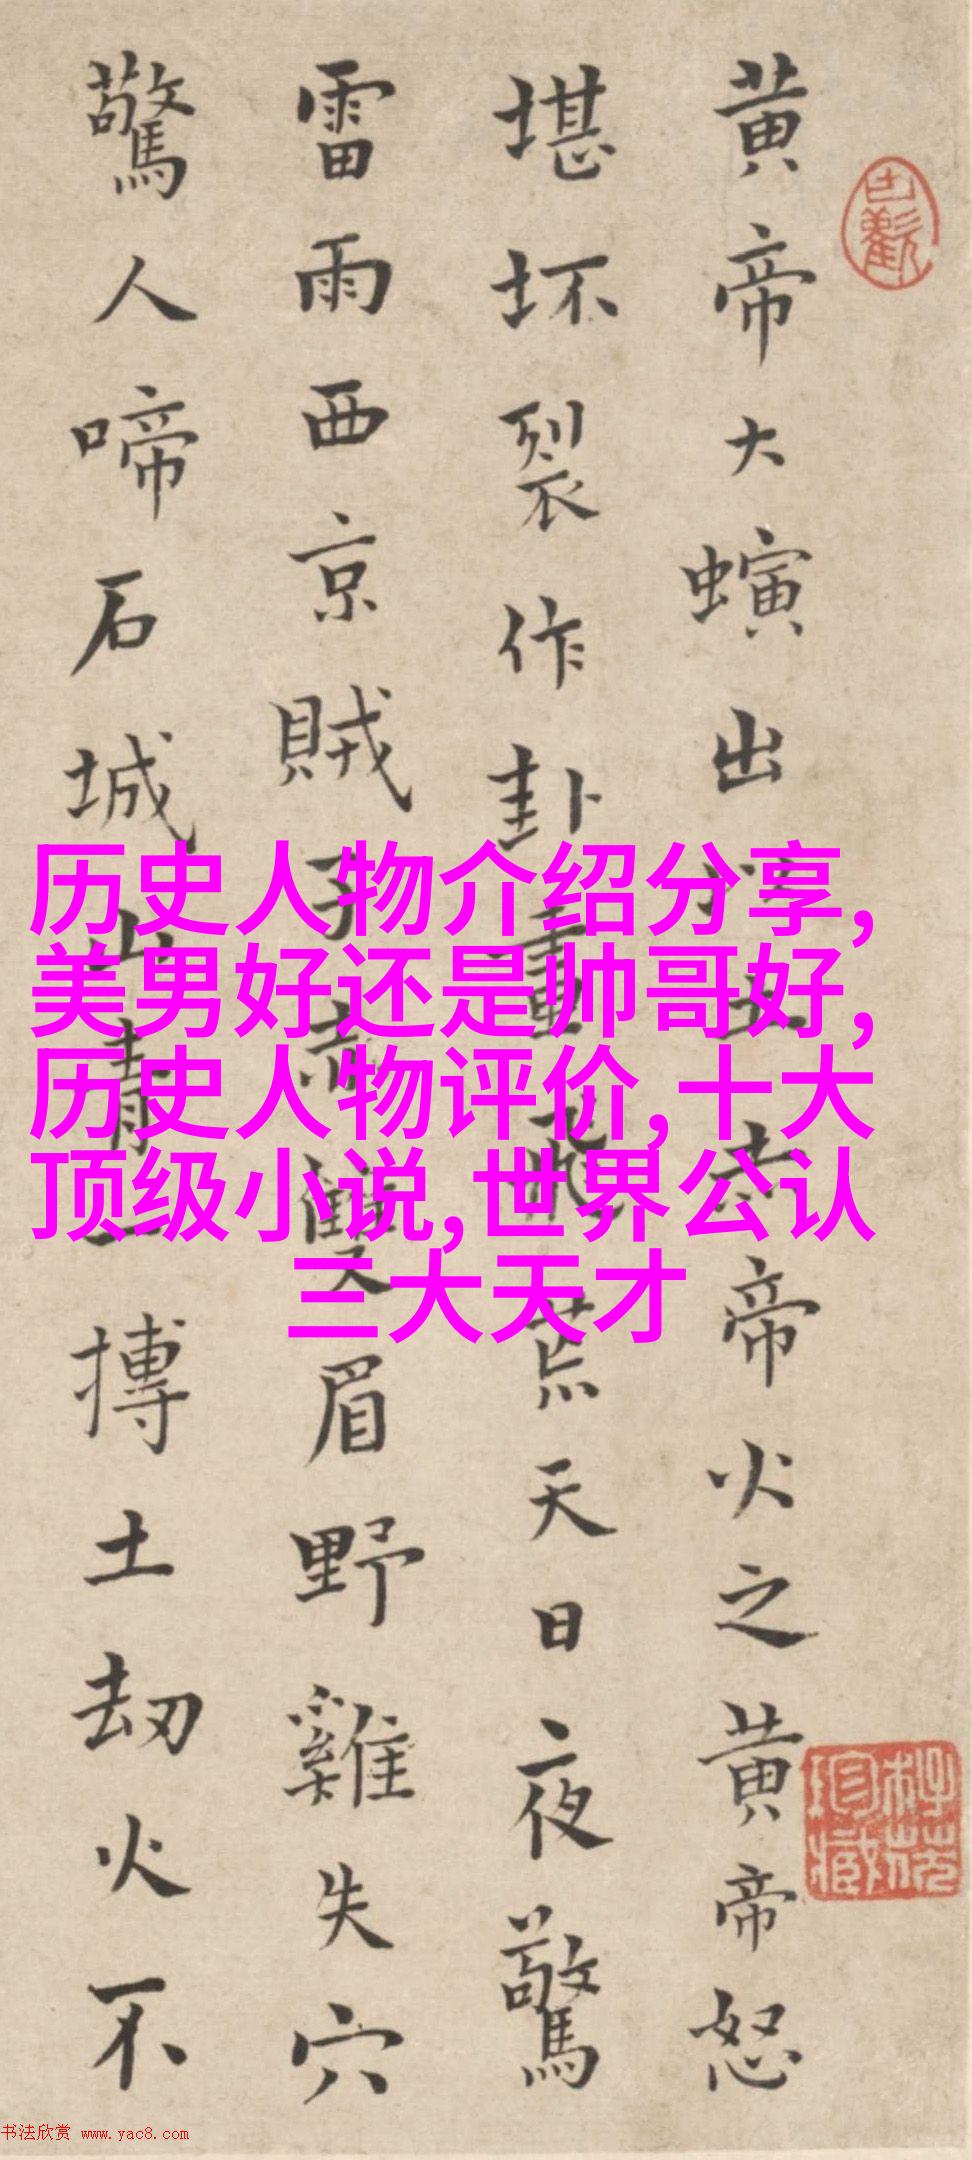 黄帝大螾出土赤帝火之黄帝怒
堪坏裂作卦重荒天日夜驚
雷雨西京賊子赤雙眉野雞失穴
驚人啼石城山青一摶土劫火不
历史人物介绍分享,
美男好还是帅哥好,
历史人物评价,十大
顶级小说,世界公认
三大天才
书法欣赏 www.yac8.com